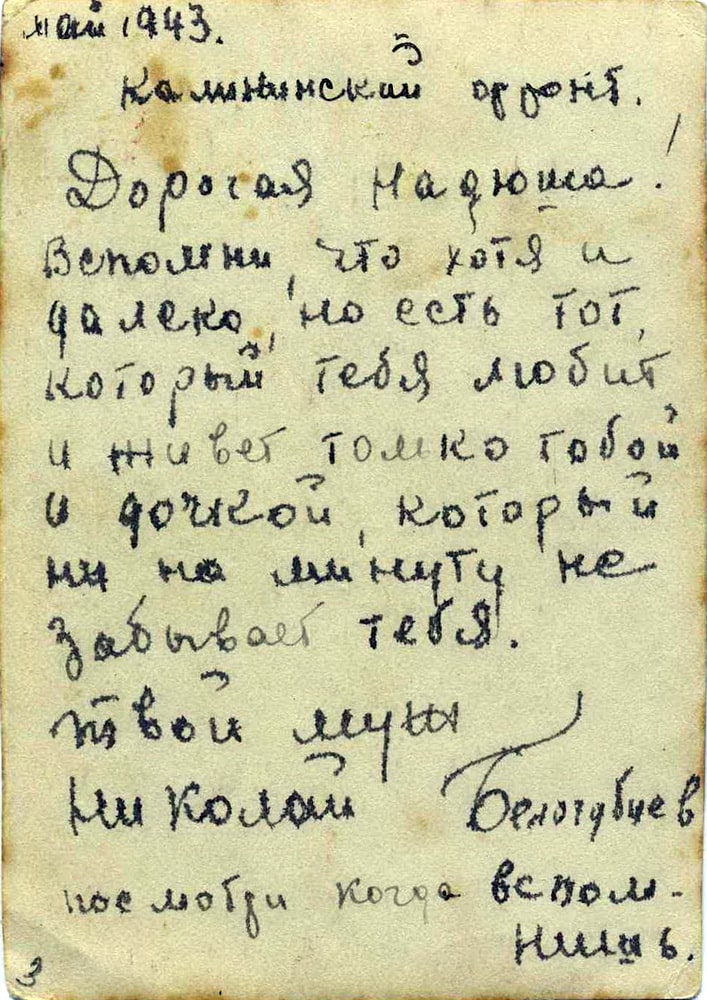 май 1943.
Калининский фронт.
Дорогая Надюша!
Вспомни, что хотя и
далеко, но есть тот,
который тебя любит
и живет толко тобой
и дочкой, который
ни на минуту не
забывает тебя.
Твой муж
Николай Белогубцев
посмотри когда вспом-
нишь.
3